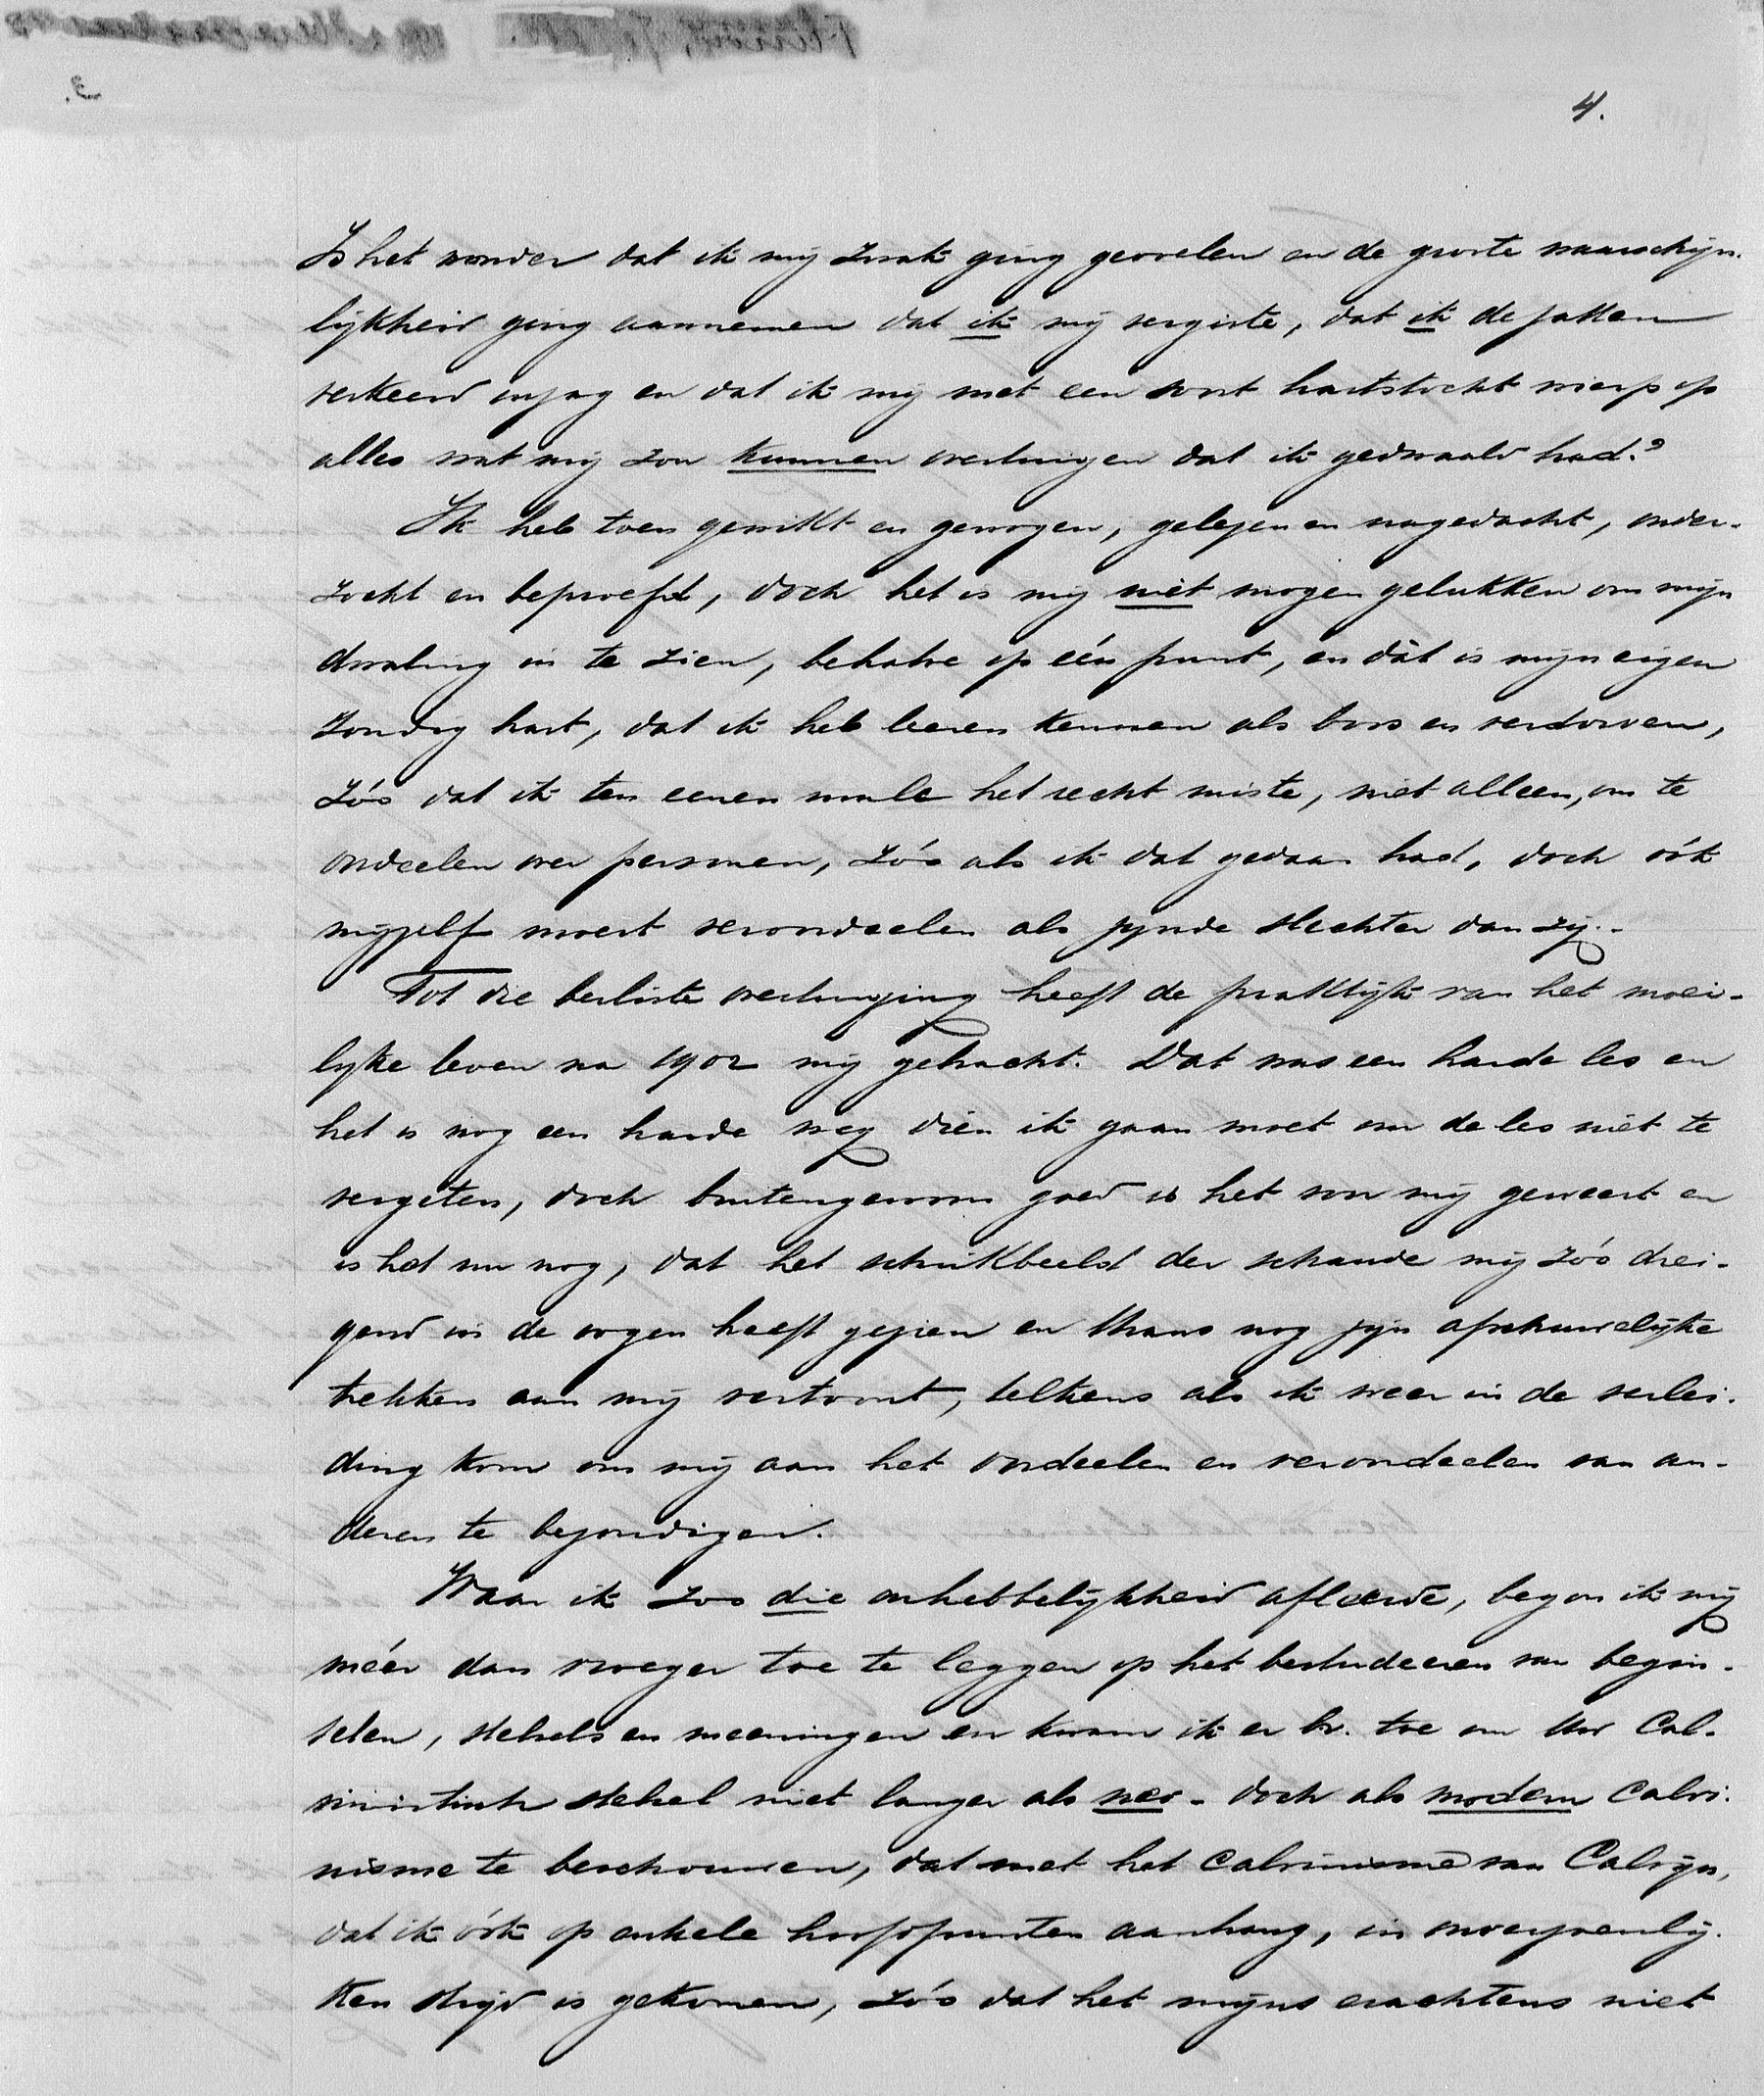 4.
Is het wonder dat ik mij zwak ging gevoelen en de groote waarschijn-
lijkheid ging aannemen dat ik mij vergiste, dat ik de zaken
verkeerd inzag en dat ik mij met een soort hartstocht wierp op
alles wat mij zou kunnen overtuigen dat ik gedwaald had?
Ik heb toen gewikt en gewogen, gelezen en nagedacht, onder-
zocht en beproefd, doch het is mij niet mogen gelukken om mijn
dwaling in te zien, behalve op één punt, en dàt is mijn eigen
zondig hart, dat ik heb leeren kennen als boos en verdorven,
zóo dat ik ten eenen male het recht miste, niet alleen, om te
oordeelen over personen, zóo als ik dat gedaan had, doch óók
mijzelf moest veroordeelen als zijnde slechter dan zij.-
Tot die besliste overtuiging heeft de praktijk van het moei-
lijke leven na 1902 mij gebracht. Dat was een harde les en
het is nog een harde weg dien ik gaan moet om de les niet te
vergeten, doch buitengewoon goed is het voor mij geweest en
is het nu nog, dat het schrikbeeld der schande mij zóo drei-
gend in de oogen heeft gezien en thans nog zijn afschuwelijke
trekken aan mij vertoont, telkens als ik weer in de verlei-
ding kom om mij aan het oordeelen en veroordeelen van an-
deren te bezondigen.
Waar ik zoo die onhebbelijkheid afleerde, begon ik mij
méér dan vroeger toe te leggen op het bestudeeren van begin-
selen, stelsels en meeningen en kwam ik er bv. toe om Uw Cal-
vinistisch stelsel niet langer als neo- doch als modern Calvi-
nisme te beschouwen, dat met het Calvinisme van Calvijn,
dat ik óók op enkele hoofdpunten aanhang, in onverzoenlij-
ken strijd is gekomen, zóo dat het mijns erachtens niet